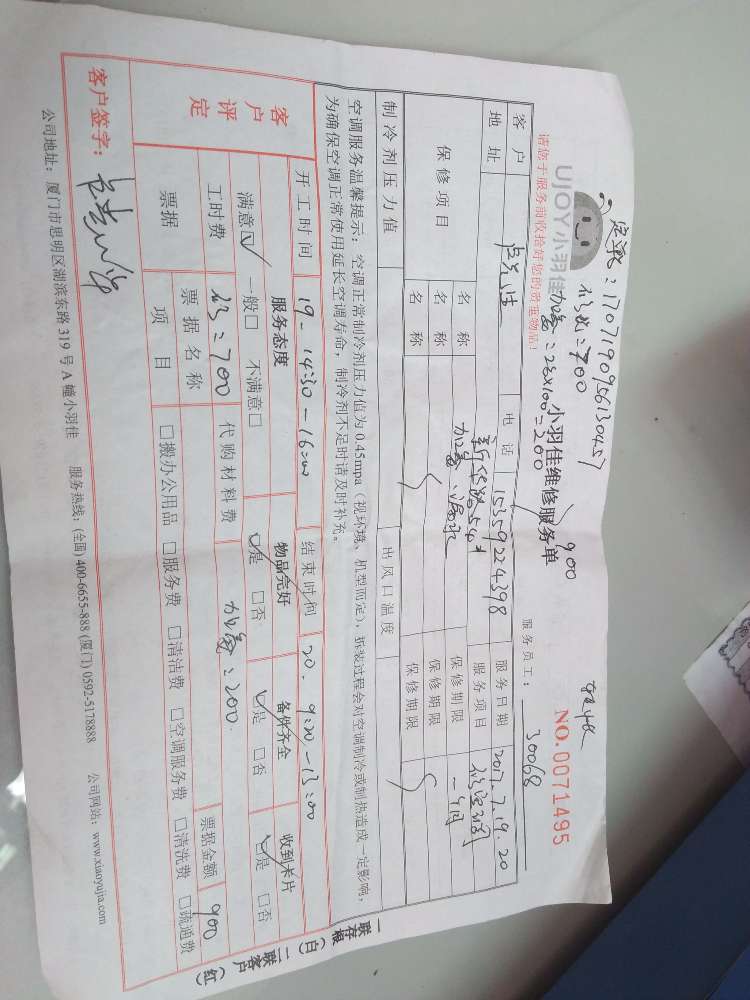 定单：1707190956130457
修：700
加氟：2次×100=200
900
UJOY小羽佳
请您于服务前收拾好您的贵重物品！
小羽佳维修服务单
NO.0071495
服务员工：30068
客户
电话
15559224398
服务日期
2017.7.19.20
地址
服务项目
保修项目
名称
加氟、漏水
保修期限
一个月
名称
保修期限
名称
保修期限
制冷剂压力值
出风口温度
空调服务温馨提示：空调正常制冷剂压力值为0.45mpa（视环境、机型而定），拆装过程会对空调制冷或制热造成一定影响，
为确保空调正常使用延长空调寿命，制冷剂不足时请及时补充。
开工时间 19-14:30-16:00 结束时间 20. 9:20-13:00
客户评定
服务态度 物品完好 备件齐全 收到卡片
满意☑ 一般□ 不满意□ ☑是 □否 ☑是 □否 ☑是 □否
工时费 修：700 代购材料费 加氟：200
票据 票据名称 票据金额 900
项目 □搬办公用品 □服务费 □清洁费 □空调服务费 □清洗费 □疏通费
客户签字：
一联存根（白） 二联客户（红）
公司地址：厦门市思明区湖滨东路319号A幢小羽佳 服务热线：(全国)400-6655-888(厦门)0592-5178888 公司网站：www.xiaoyujia.com